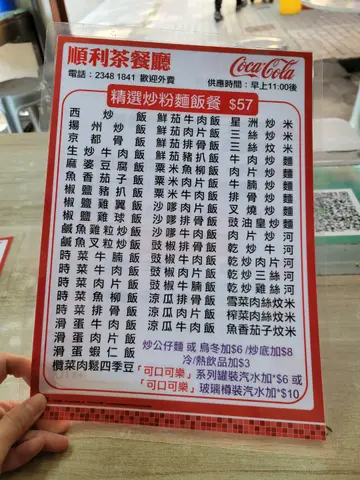 順利茶餐廳
Coca-Cola
電話：2348 1841 歡迎外賣
供應時間：早上11:00後
精選炒粉麵飯餐 $57
西炒飯
揚州炒飯
京都骨飯
生炒牛肉飯
麻婆豆腐飯
魚香茄子飯
椒鹽豬扒飯
椒鹽雞翼飯
椒鹽雞球飯
鹹魚雞粒炒飯
鹹魚叉粒炒飯
時菜牛腩飯
時菜肉片飯
時菜魚柳飯
時菜排骨飯
滑蛋牛肉飯
滑蛋蝦仁飯
欖菜肉鬆四季豆
鮮茄牛肉飯
鮮茄肉片飯
鮮茄排骨飯
鮮茄豬扒飯
粟米魚柳飯
粟米肉片飯
沙嗲牛肉飯
沙嗲肉片飯
沙嗲排骨飯
豉椒排骨飯
豉椒牛肉飯
豉椒肉片飯
涼瓜牛肉飯
涼瓜肉片飯
涼瓜排骨飯
星洲炒米
三絲炒米
三絲炆米
牛肉炒麵
肉片炒麵
牛腩炒麵
排骨炒麵
叉燒炒麵
豉油皇炒麵
肉片炒河
乾炒牛河
乾炒三絲河
乾炒雞絲河
雪菜肉絲炆米
榨菜肉絲炆米
魚香茄子炆米
炒公仔麵 或 烏冬加$6 /炒底加$8
冷/熱飲品加$3
「可口可樂」系列罐裝汽水加*$6 或
「可口可樂」玻璃樽裝汽水加*$10